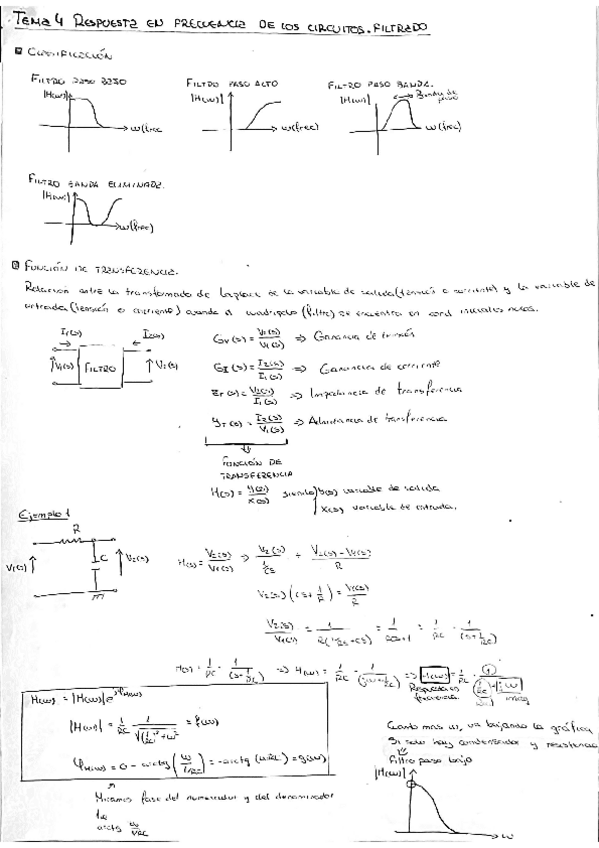 TEMA 4 RESPUESTA EN FRECUENCIA DE LOS CIRCUITOS. FILTRADO
CLASIFICACIÓN
FILTRO PASO BAJO
FILTRO PASO ALTO
FILTRO PASO BANDA.
|H(w)|
w(frec
|H(w)|
w(frec)
|H(w)|
Banda de paso
w(frec)
FILTRO BANDA ELIMINADA.
|H(w)|
w(frec)
FUNCIÓN DE TRANSFERENCIA.
Relación entre la transformada de Laplace de la variable de salida (tensión o corriente) y la variable de
entrada (tensión o corriente) cuando el cuadripolo (filtro) se encuentra en cond iniciales nulas.
I1(s)
I2(s)
V1(s)
FILTRO
V2(s)
=> Ganancia de tensión
GI(s) = I2(s)/I1(s) => Ganancia de corriente
ZT(s) = V2(s)/I1(s) => Impedancia de transferencia
YT(s) = I2(s)/V1(s) => Admitancia de transferencia
FUNCIÓN DE
TRANSFERENCIA
H(s) = Y(s)/X(s) siendo Y(s) variable de salida
X(s) variable de entrada.
Ejemplo 1
R
C
V2(s)
H(s) =
V2(s) (Cs + 1/R) =
H(s) = 1/RC · 1/(s+1/RC) => H(w) = 1/RC · 1/(jw+1/RC) =>
Respuesta en
frecuencia.
|H(w)| = 1/RC · 1/√((1/RC)²+w²) = f(w)
φH(w) = 0 - arctg (w/(1/RC)) = -arctg (wRC) = g(w)
Miramos fase del numerador y del denominador
arctg w/1/RC
Cuanto mas w, va bajando la gráfica
Si solo hay condensador y resistencia
Filtro paso bajo
|H(w)|
w